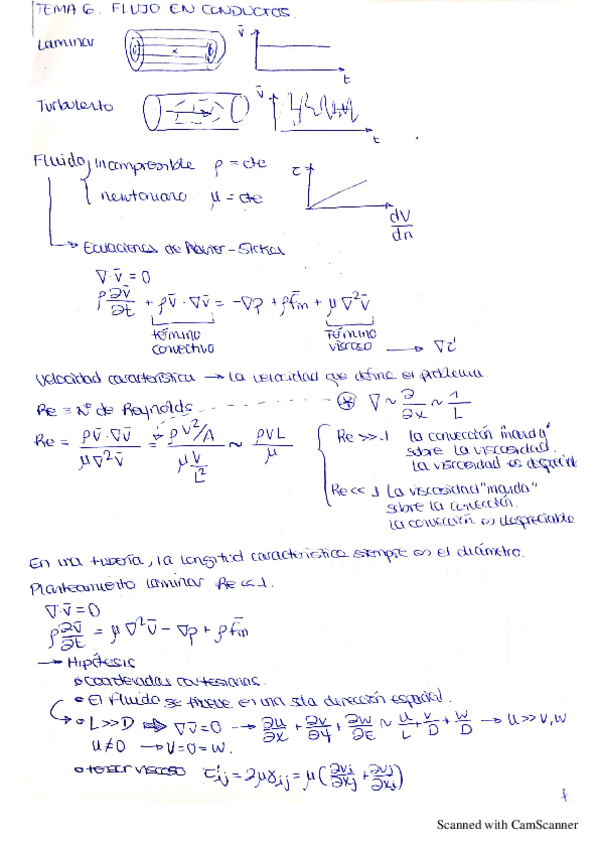 TEMA 6. FLUJO EN CONDUCTOS.
Laminar
v̄
t
Turbulento
v̄
t
Fluido, incompresible ρ = cte
newtoniano μ = cte
τ
dV/dn
Ecuaciones de Navier-Stokes
∇·v̄ = 0
ρ ∂v̄/∂t + ρv̄·∇v̄ = -∇p + ρf̄m + μ∇²v̄
término convectivo
término viscoso → ∇τ'
Velocidad característica → La velocidad que define el problema
Re = Nº de Reynolds - - - - - - - - ⊛ ∇ ~ ∂/∂x ~ 1/L
Re = ρv̄·∇v̄ / μ∇²v̄ = ρ V²/A / μ V/L² ~ ρVL/μ
Re >> 1 la convección "manda"
sobre la viscosidad.
La viscosidad es despreciable
Re << 1 La viscosidad "manda"
sobre la convección.
La convección es despreciable
En una tubería, la longitud característica siempre es el diámetro.
Planteamiento laminar Re << 1.
∇·v̄ = 0
ρ ∂v̄/∂t = μ∇²v̄ - ∇p + ρf̄m
→ Hipótesis
• Coordenadas cartesianas.
• El fluido se mueve en una sola dirección espacial.
• L >> D ⇒ ∇v̄ = 0 → ∂u/∂x + ∂v/∂y + ∂w/∂z ~ u/L + v/D + w/D → u >> v, w
u ≠ 0 → v = 0 = w.
• tensor viscoso τ'ij = 2μγij = μ(∂vi/∂xj + ∂vj/∂xi)
1
Scanned with CamScanner